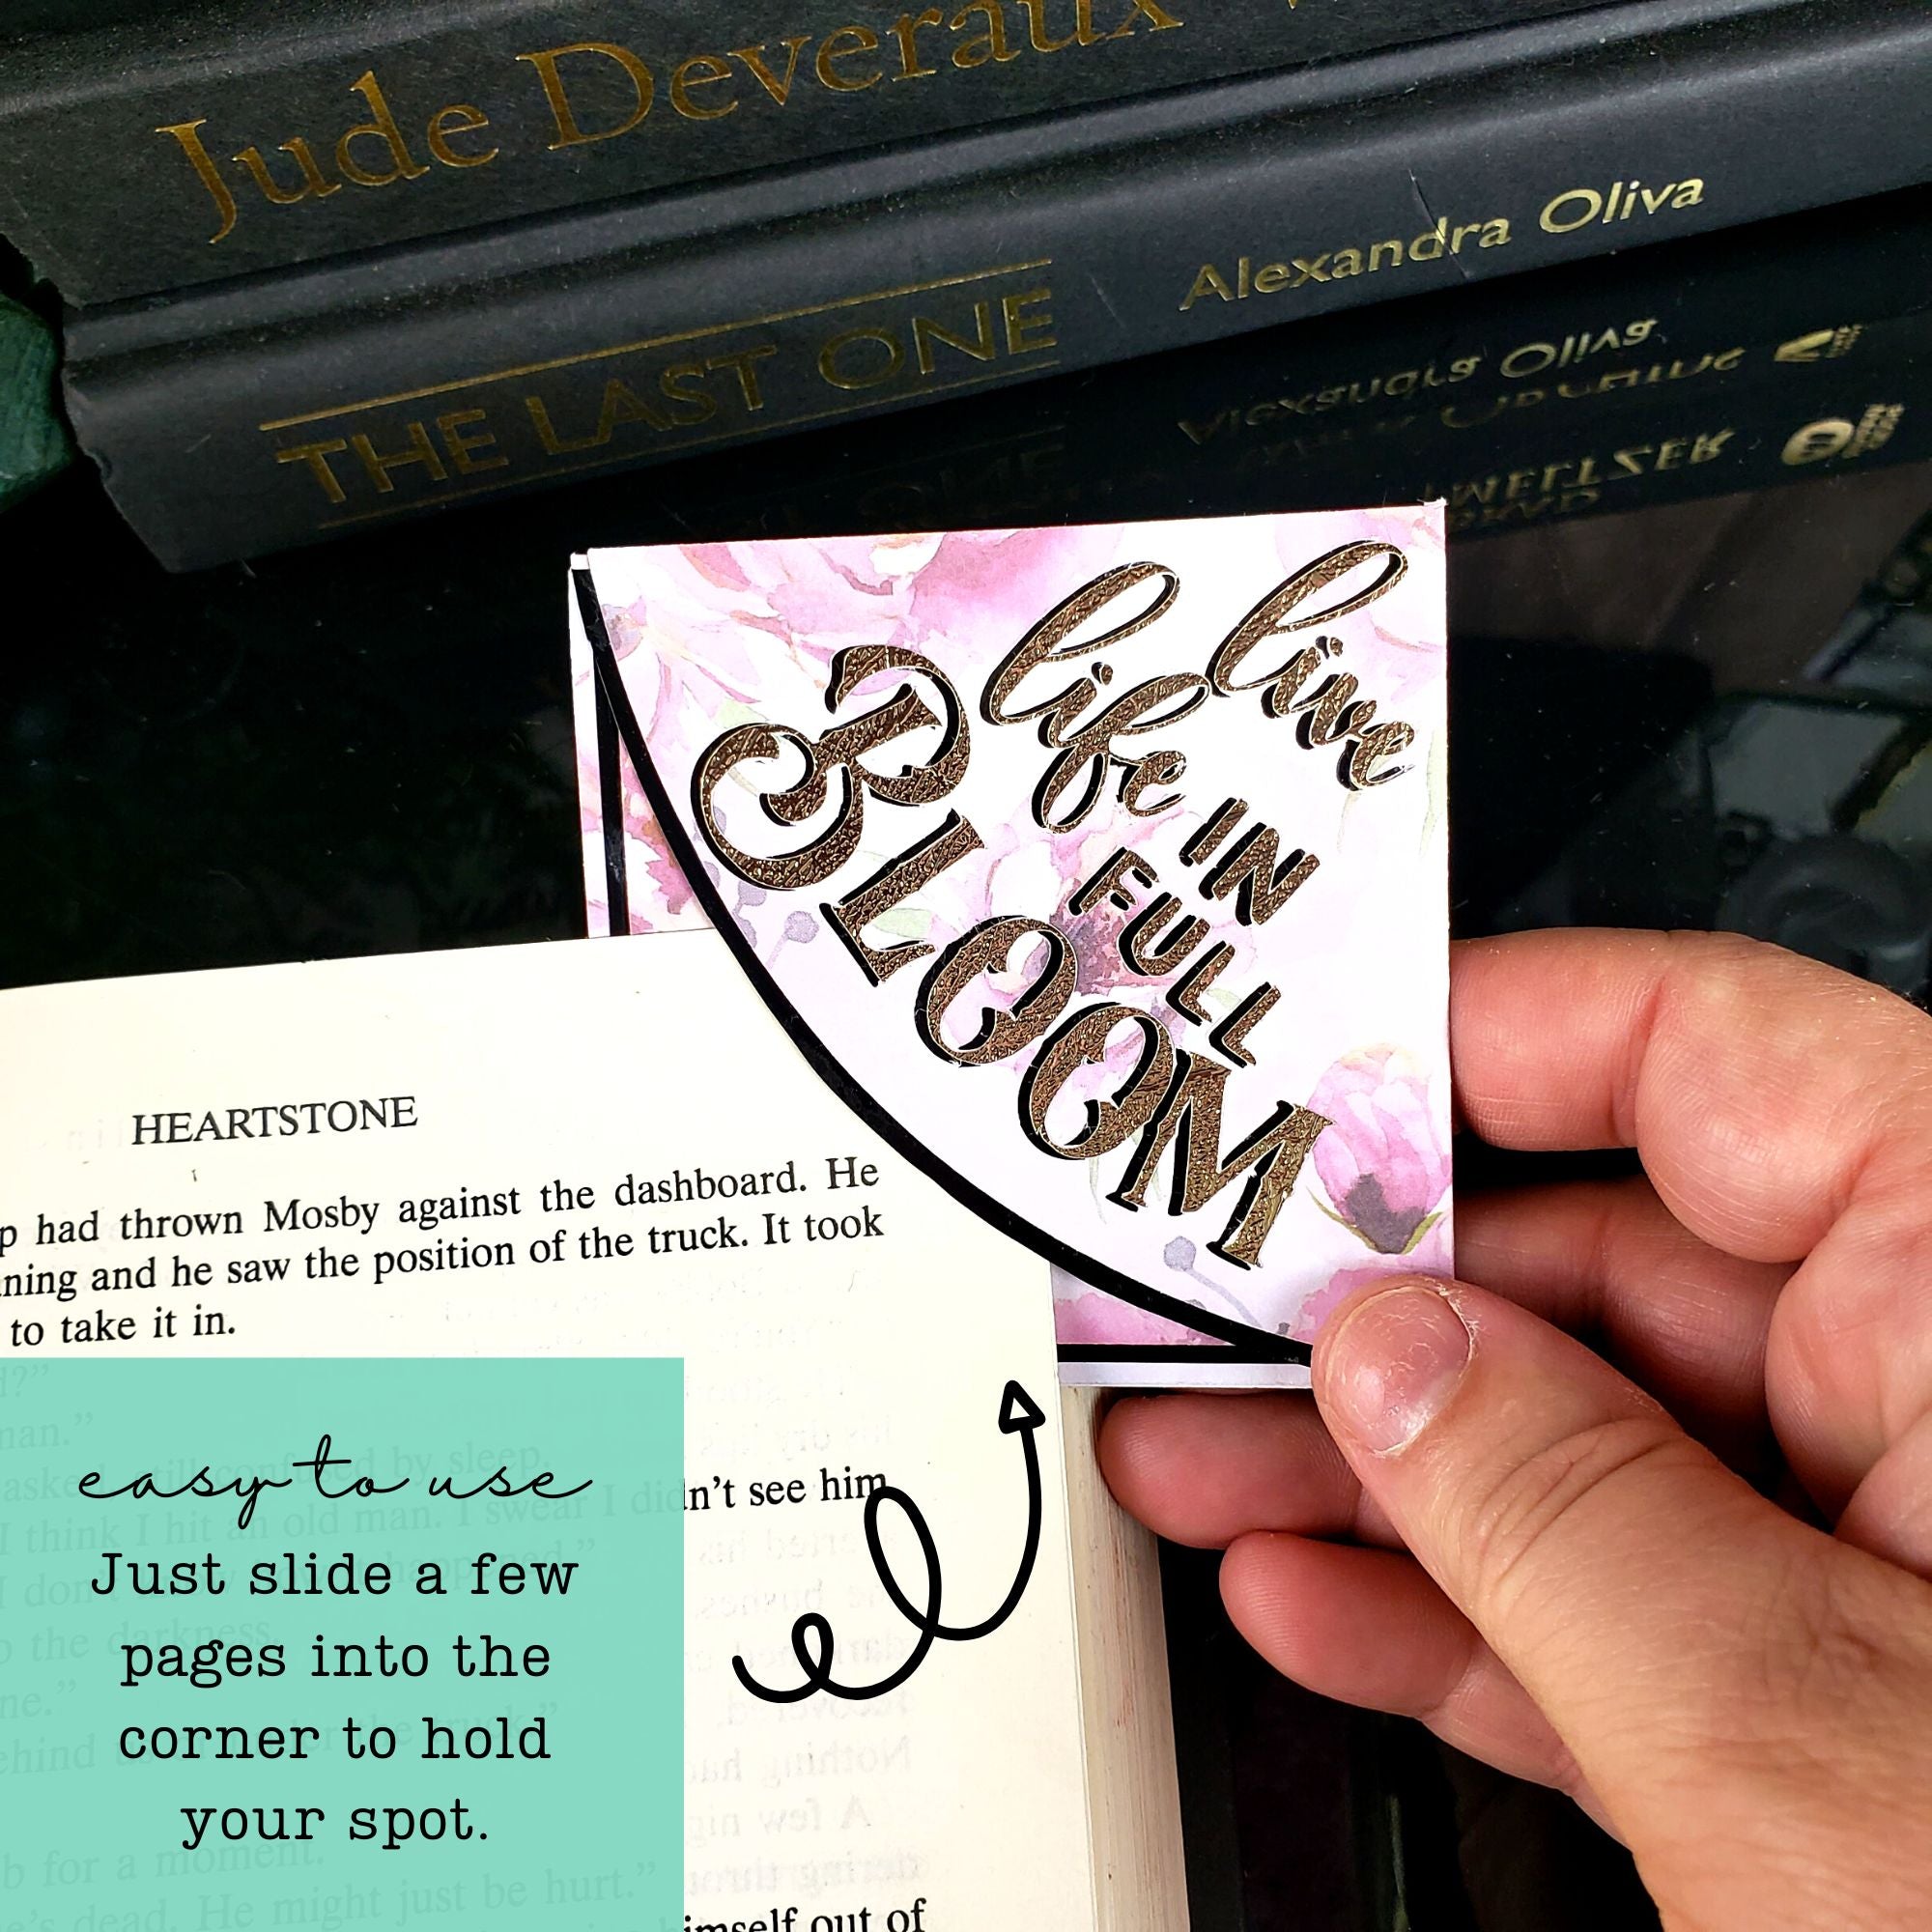 Jude Deveraux
THE LAST ONE Alexandra Oliva
Alexandra Oliva
MELTZER
BRAD
live
life
IN
FULL
BLOOM
HEARTSTONE
had thrown Mosby against the dashboard. He
ning and he saw the position of the truck. It took
to take it in.
man.”
asked, still confused by sleep.
I think I hit an old man. I swear I didn’t see him
I don’t happened.”
the darkness.
the truck.”
b for a moment.
’s dead. He might just be hurt.”
imself out of
easy to use
Just slide a few
pages into the
corner to hold
your spot.